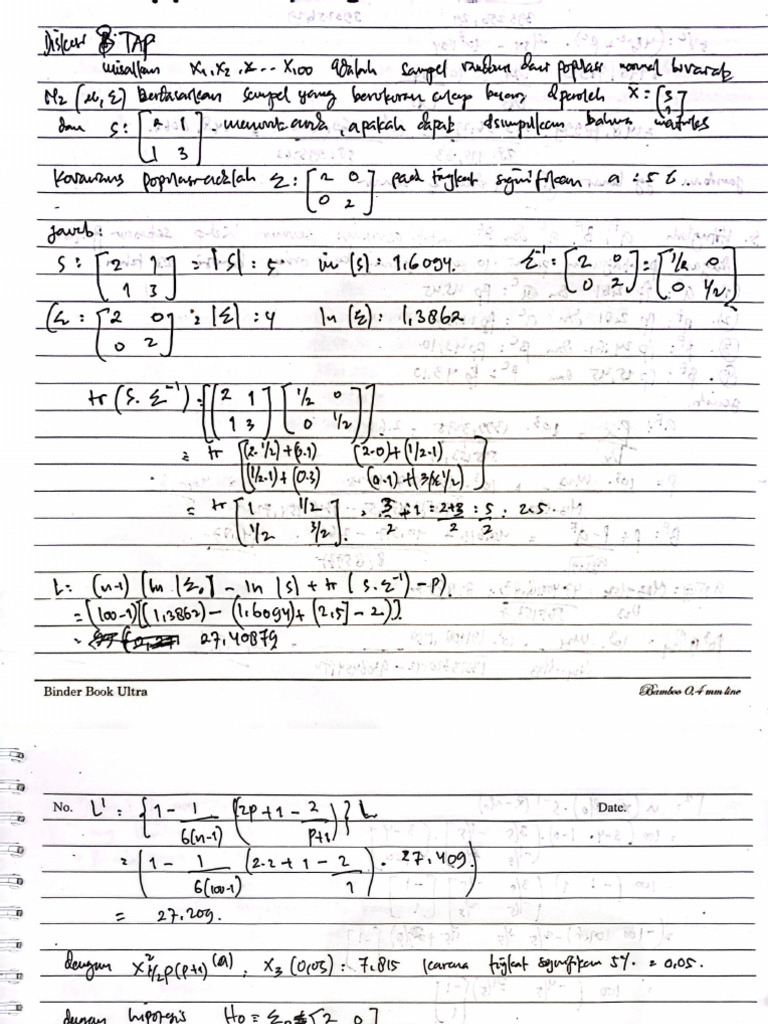 Diskusi 8 TAP
misalkan X1, X2, X... X100 adalah sampel random dari populasi normal bivariat
N2 (μ, Σ) Berdasarkan sampel yang berukuran cukup besar, diperoleh X = [5
dan S : [2 1 . menurut anda, apakah dapat disimpulkan bahwa matriks
1 3]
Kovarians populasi adalah Σ : [2 0 pada tingkat signifikan a : 5 %.
0 2]
jawab :
S : [2 1 = |S| : 5 ln |S| : 1,6094. Σ⁻¹ : [2 0 = [1/2 0
1 3] 0 2] 0 1/2]
(Σ : [2 0 : |Σ| : 4 ln |Σ| : 1,3862
0 2]
tr (S. Σ⁻¹) : [[2 1 [1/2 0
1 3] 0 1/2]]
= tr [(2.1/2)+(0.1) (2.0)+(1/2.1)
(1/2.1)+(0.3) (0.1)+(3x1/2)]
= tr [1 1/2 = 3/2 + 1 = 2+3/2 : 5/2 : 2.5
1/2 3/2].
L : (n-1) [ln |Σ0| - ln |S| + tr (S. Σ⁻¹) - P).
= (100-1)[(1,3862) - (1,6094) + (2,5] - 2)].
= 27,40879
Binder Book Ultra
Bamboo 0.4 mm line
No. L' = {1 - 1/6(n-1) (2p+1 - 2/p+1)} L
Date.
= (1 - 1/6(100-1) (2.2 + 1 - 2/1) . 27,409)
= 27,209.
dengan X²1/2p(p+1) (a), X3 (0,05) : 7,815 karena tingkat signifikan 5% = 0,05.
dengan hipotesis H0 = Σ0 = [2 0]